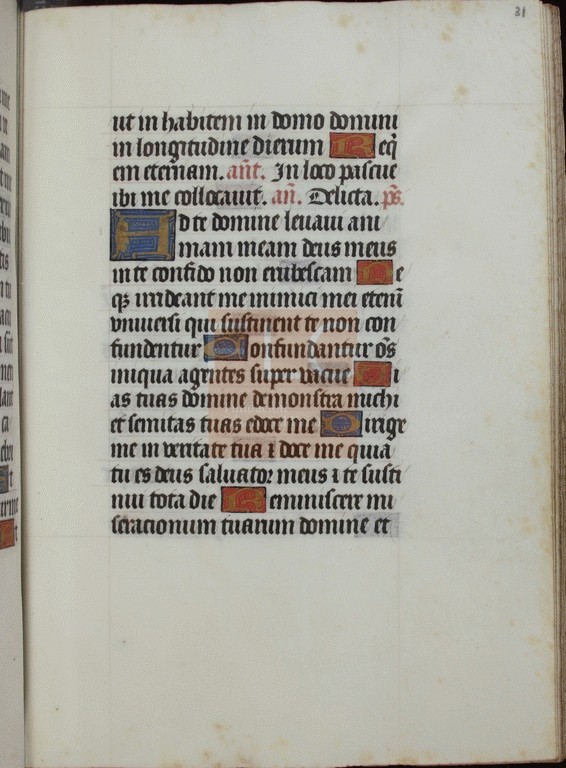 31
ut in habitem in domo domini
in longitudine dierum Req̄
em eternam. añt. In loco pascue
ibi me collocauit. añ. Delicta. p̄s.
Ad te domine leuaui ani
mam meam deus meus
in te confido non erubescam Ne
qꝫ irrideant me inimici mei etenī
vniuersi qui sustinent te non con
fundentur Confundantur oīs
iniqua agentes super vacue Vi
as tuas domine demonstra michi
et semitas tuas edoce me Dirige
me in veritate tua ⁊ doce me quia
tu es deus saluator meus ⁊ te susti
nui tota die Reminiscere mi
seracionum tuarum domine et